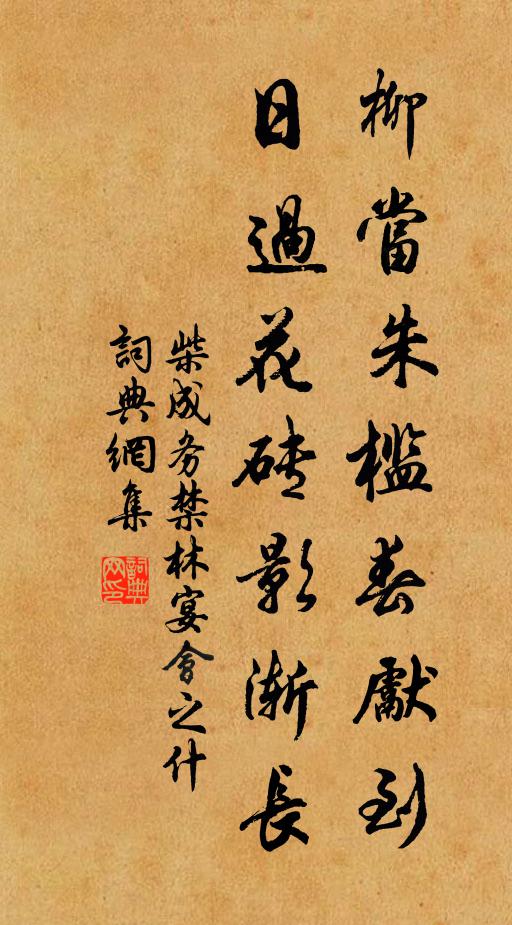 柳當朱檻春獻到
日過花磚影漸長
柴成务禁林宴會之什
詞典網集
詞典
网印